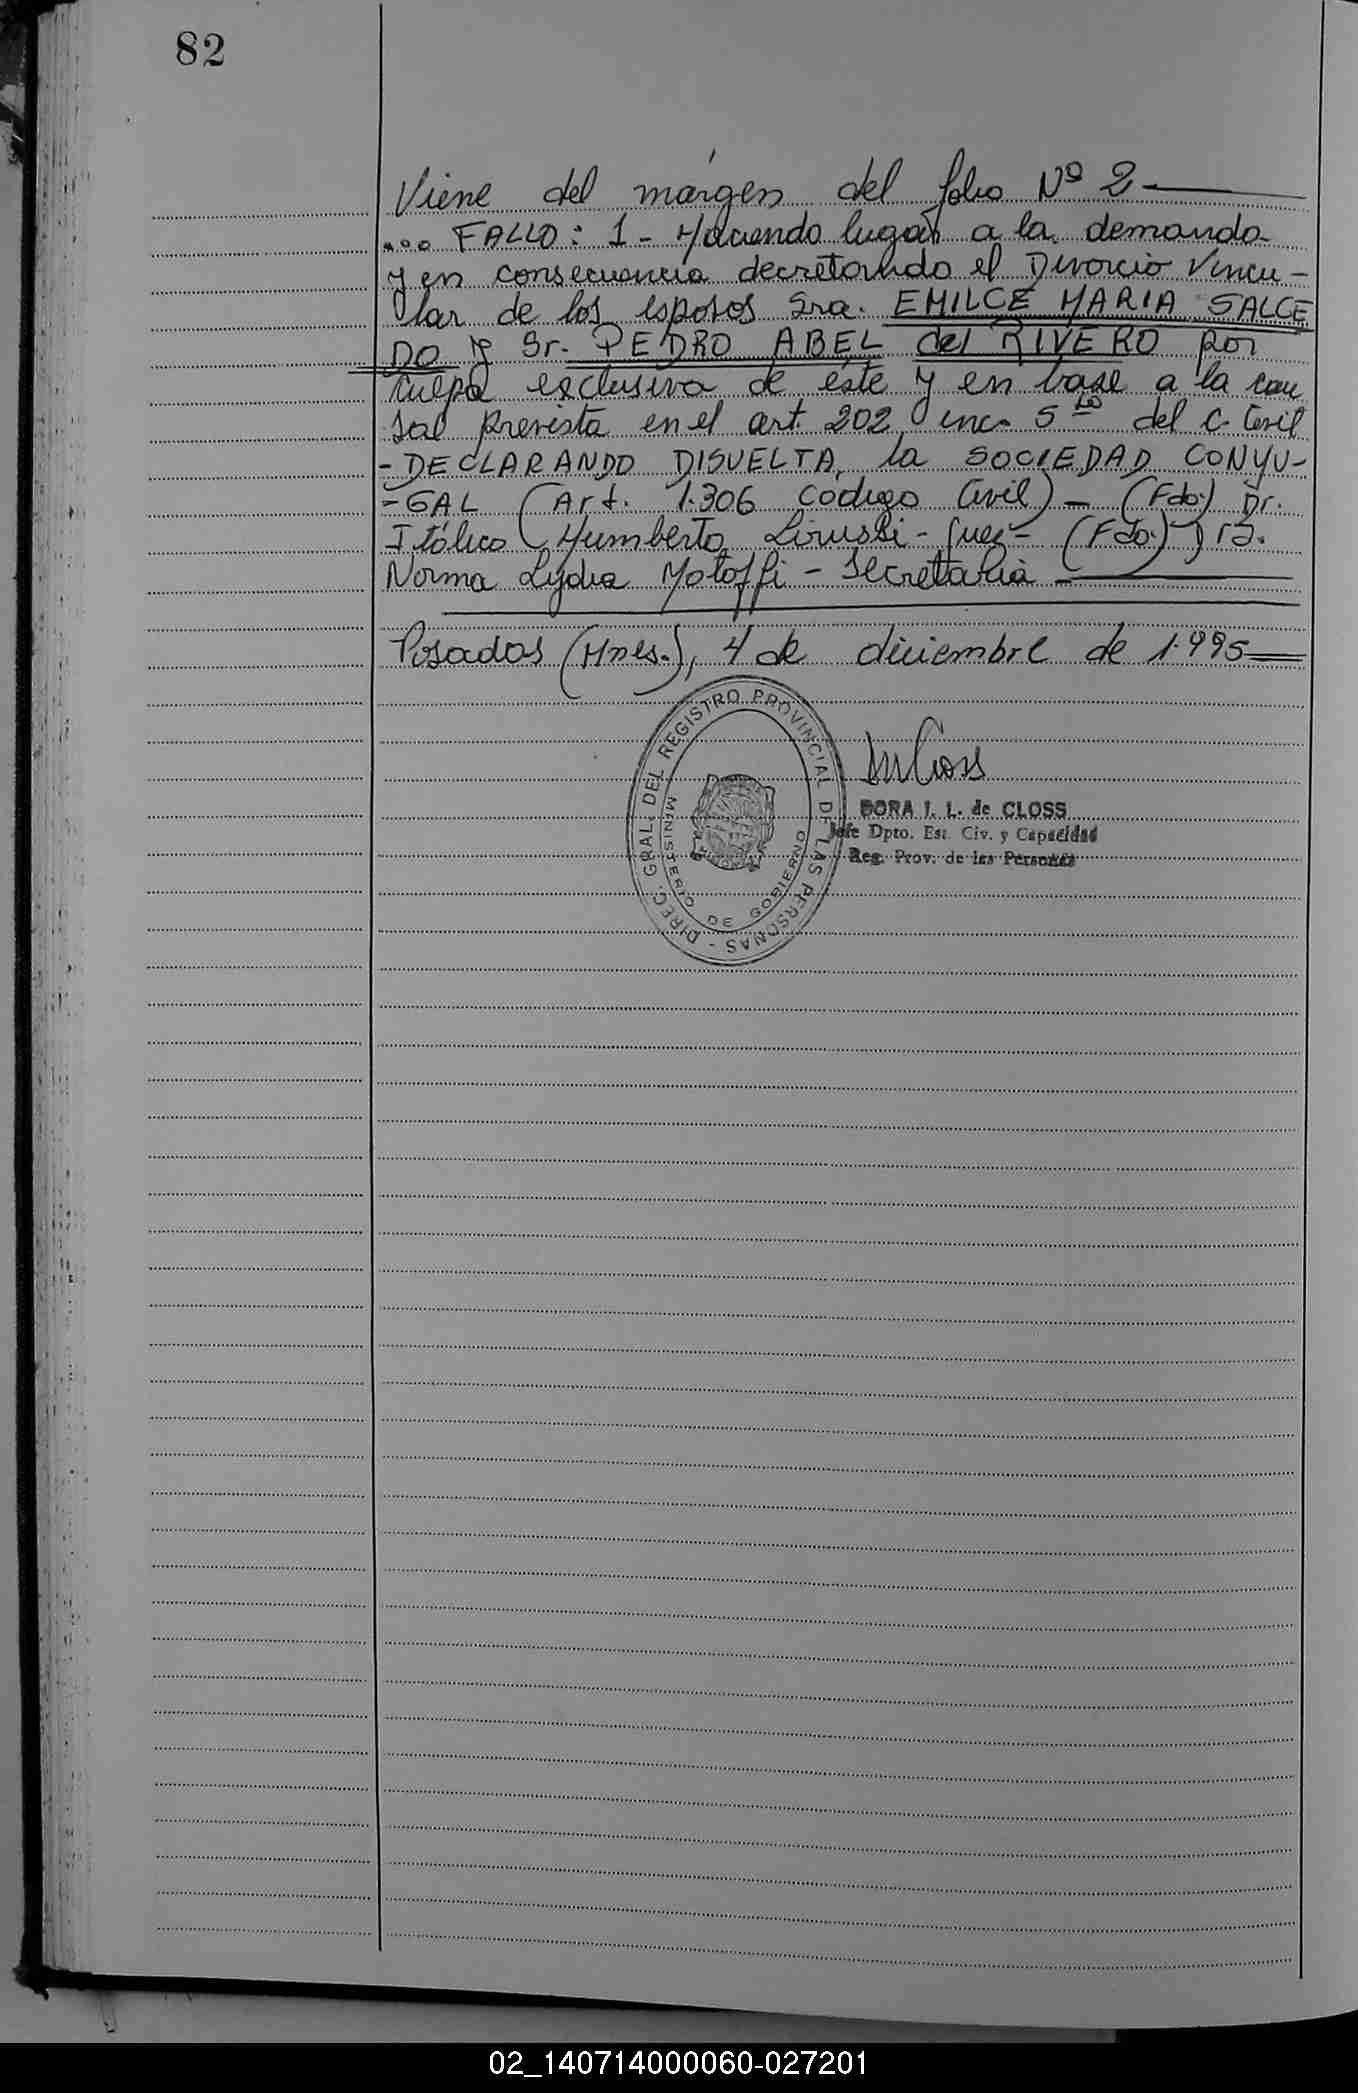 82
Viene del márgen del folio Nº 2
... FALLO: 1 - Haciendo lugar a la demanda
y en consecuencia decretando el Divorcio Vincu-
lar de los esposos Sra. EMILCE MARIA SALCE
DO y Sr. PEDRO ABEL del RIVERO por
culpa exclusiva de éste y en base a la cau
sal prevista en el art. 202 inc. 5to del C. Civil
- DECLARANDO DISUELTA, la SOCIEDAD CONYU-
- GAL (Art. 1.306 Codigo Civil) - (Fdo.) Dr.
Itálico Humberto - Juez - (Fdo.) Dra.
Norma Lydia - Secretaria
Posadas (Mnes.), 4 de diciembre de 1.995
DIREC. GRAL. DEL REGISTRO PROVINCIAL DE LAS PERSONAS -
MINISTERIO DE GOBIERNO
DORA I. L. de CLOSS
Jefe Dpto. Est. Civ. y Capacidad
Reg. Prov. de las Personas
02_140714000060-027201